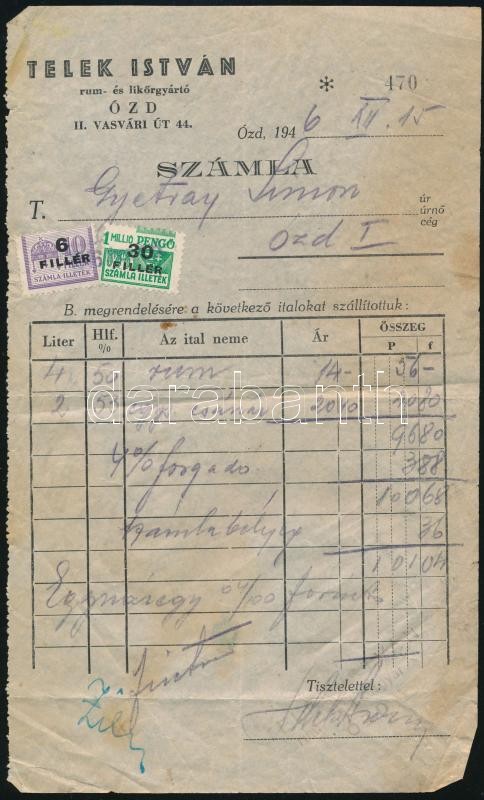 TELEK ISTVÁN
rum- és likőrgyártó
ÓZD
II. VASVÁRI ÚT 44.
* 470
Ózd, 1946 XII. 15
SZÁMLA
T. Gyetvay Simon
úr
úrnő
cég
Ózd I
6 FILLÉR
SZÁMLA ILLETÉK
1 MILLIÓ PENGŐ
30 FILLÉR
SZÁMLA ILLETÉK
B. megrendelésére a következő italokat szállítottuk:
Liter Hlf. % Az ital neme Ár ÖSSZEG
P f
4 50 rum 14- 56-
2 20
darabanth
9680
4% forgadó 388
10068
számlabélyeg 36
10104
04/00 forint
Tisztelettel: